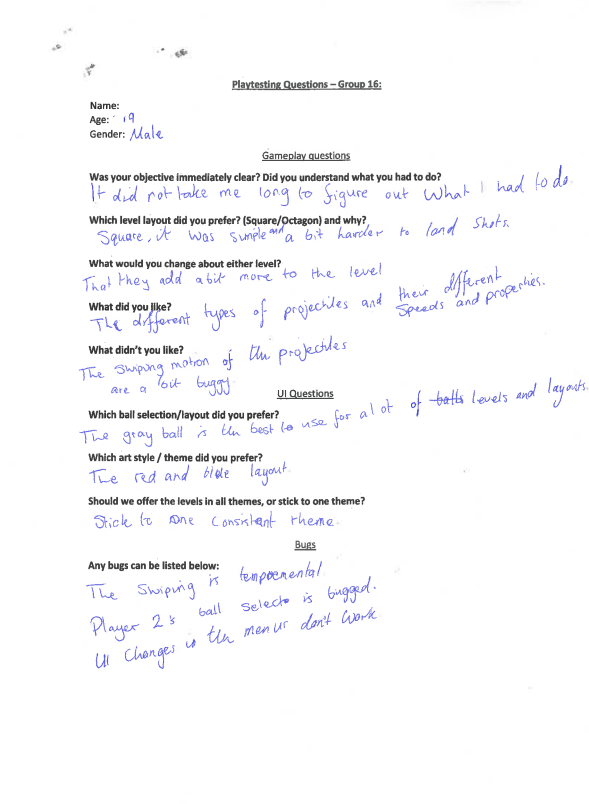 Playtesting Questions – Group 16:
Name:
Age: 19
Gender: Male
Gameplay questions
Was your objective immediately clear? Did you understand what you had to do?
It did not take me long to figure out what I had to do.
Which level layout did you prefer? (Square/Octagon) and why?
Square, it was simple and a bit harder to land shots.
What would you change about either level?
That they add a bit more to the level
What did you like?
The different types of projectiles and their different
speeds and properties.
What didn't you like?
The swiping motion of the projectiles
are a bit buggy.
UI Questions
Which ball selection/layout did you prefer?
The gray ball is the best to use for a lot of balls levels and layouts.
Which art style / theme did you prefer?
The red and blue layout.
Should we offer the levels in all themes, or stick to one theme?
Stick to one consistant theme.
Bugs
Any bugs can be listed below:
The swiping is
Player 2's ball select is bugged.
UI Changes in the menus don't work